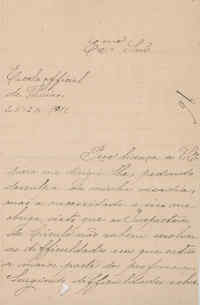 Exmo Snr.
Escola official
de
Peço licença a V. Exª
para me dirigir lhe, pedindo
desculpa da minha ousadia,
mas a necessidade a isso me
obriga, visto que os Inspectores
do Circulo não sabem resolver
as difficuldades em que está
a maior parte do professorado.
Surgindo difficuldades sobre